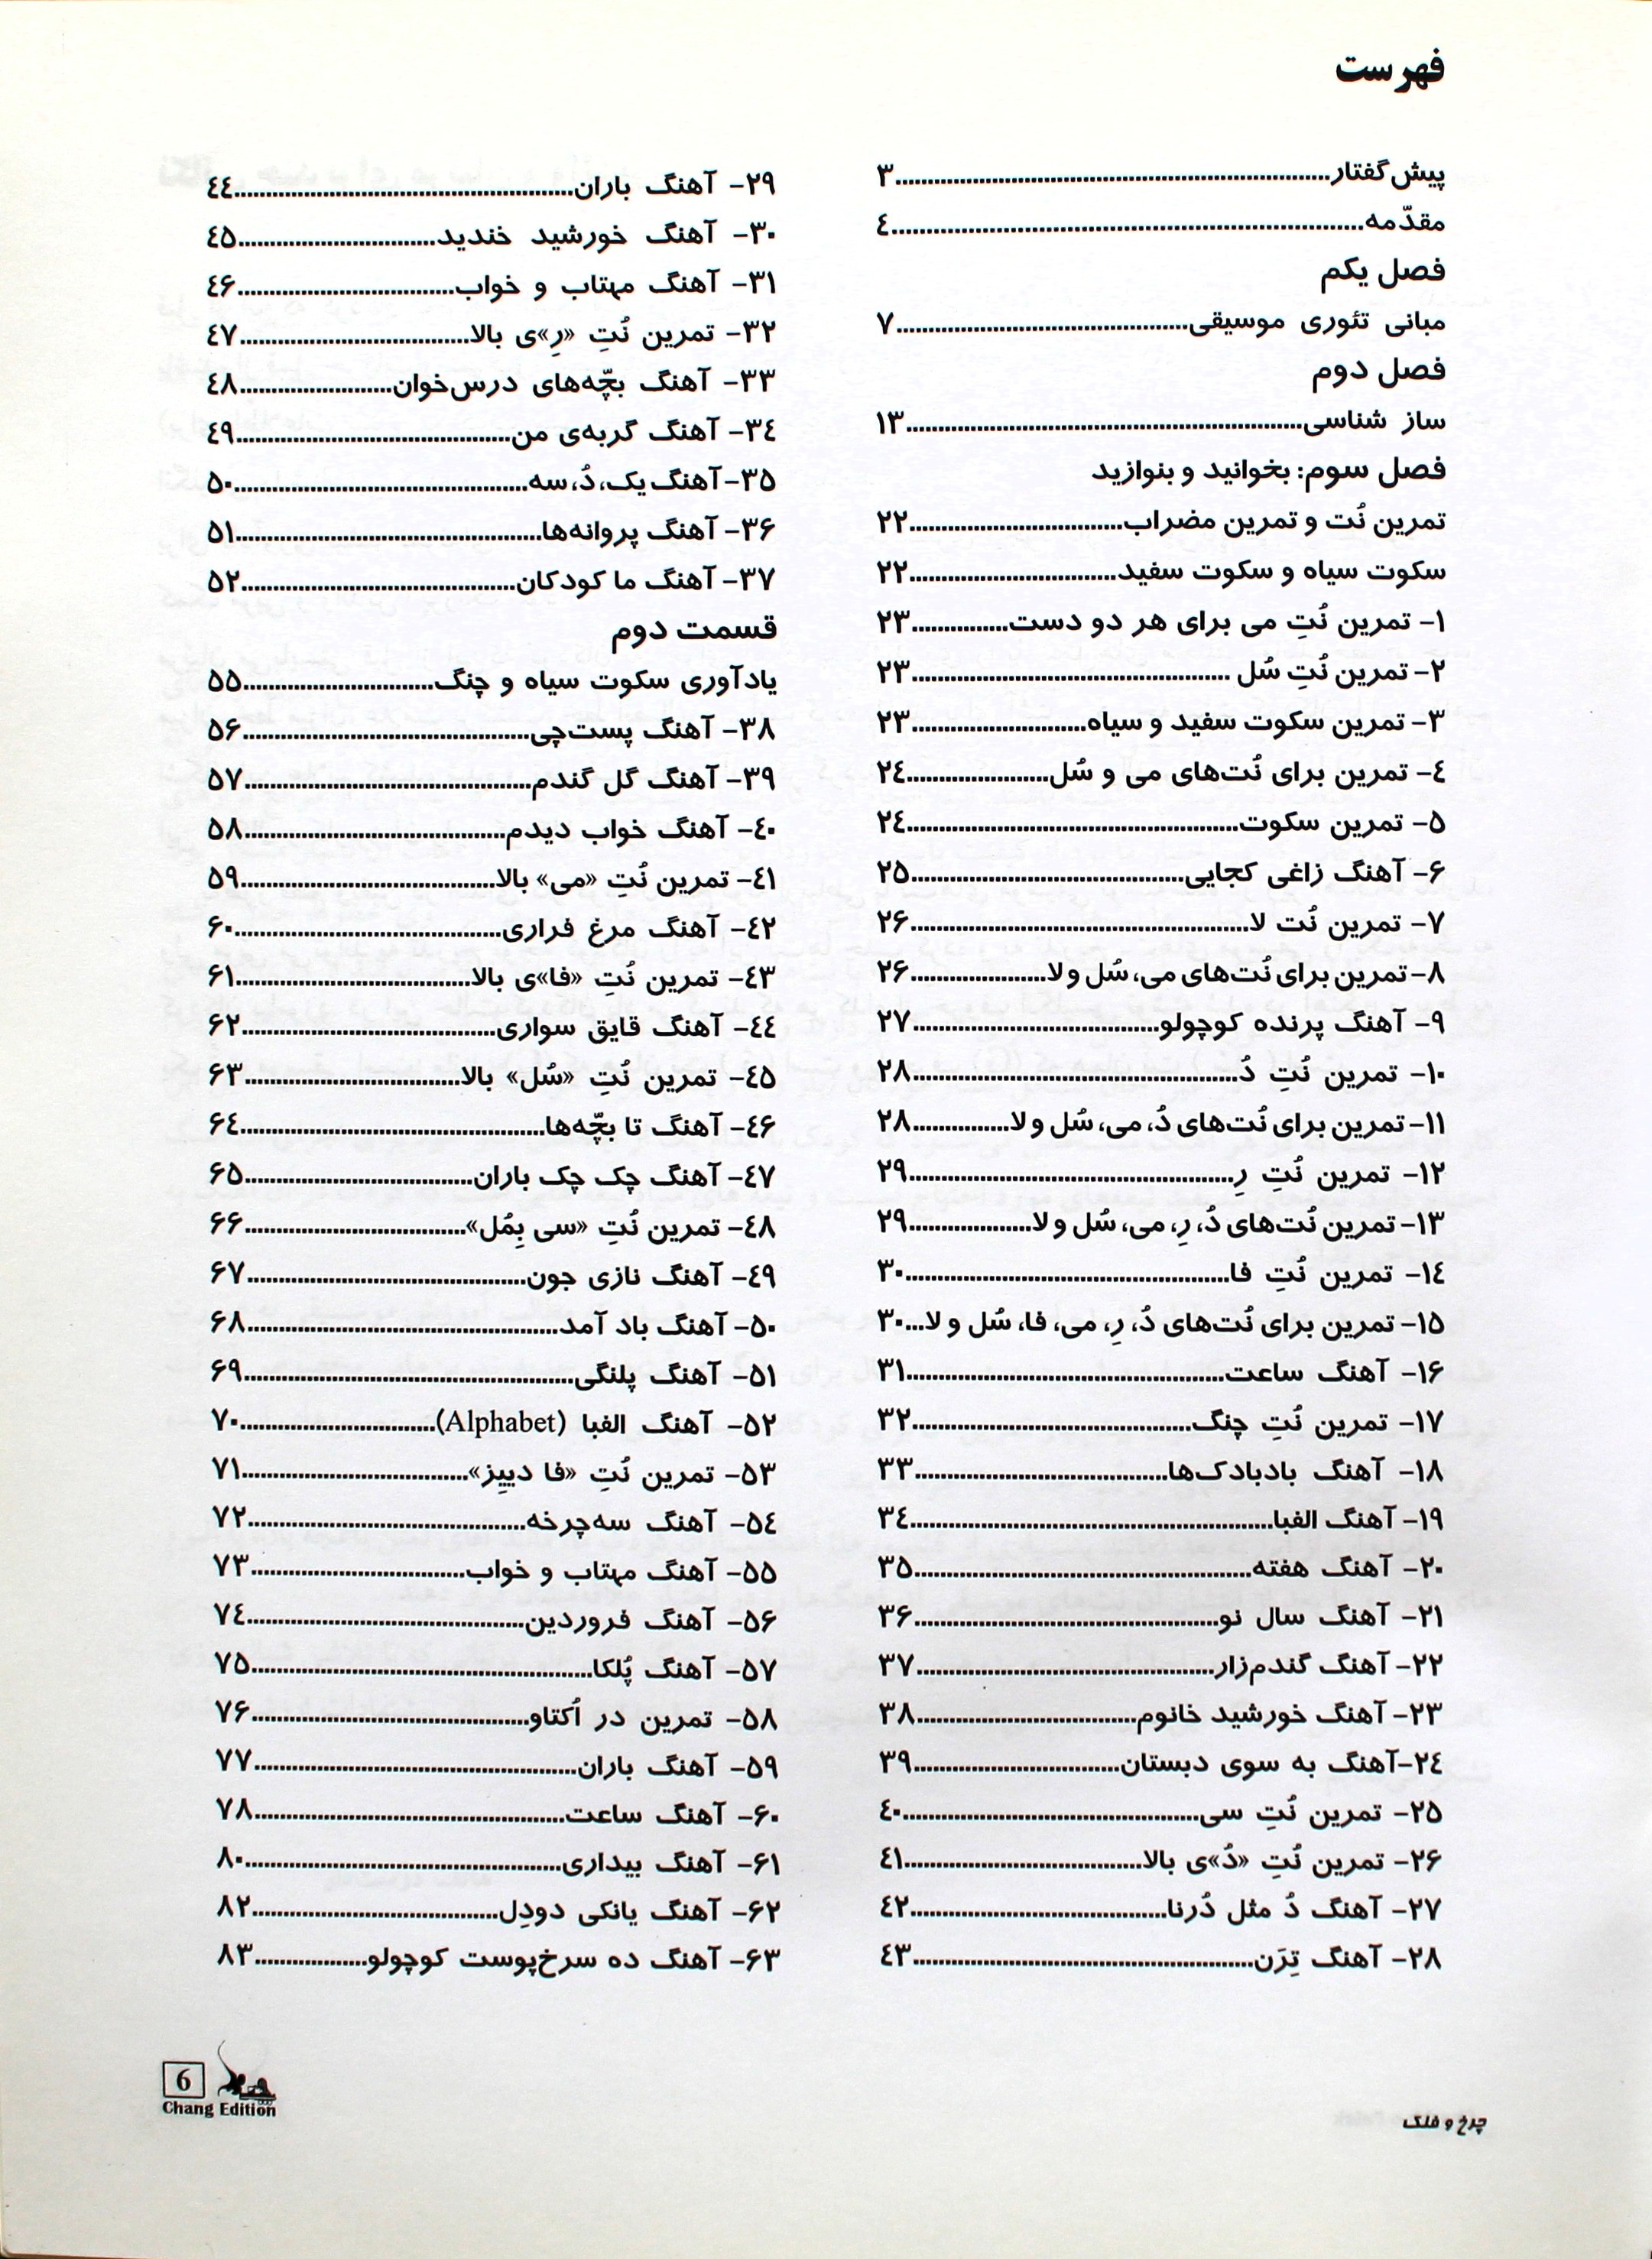 فهرست
پیش‌گفتار..........۳
مقدّمه..........٤
فصل یکم
مبانی تئوری موسیقی..........۷
فصل دوم
ساز شناسی..........۱۳
فصل سوم: بخوانید و بنوازید
تمرین نُت و تمرین مضراب..........۲۲
سکوت سیاه و سکوت سفید..........۲۲
۱- تمرین نُتِ می برای هر دو دست..........۲۳
۲- تمرین نُتِ سُل..........۲۳
۳- تمرین سکوت سفید و سیاه..........۲۳
٤- تمرین برای نُت‌های می و سُل..........۲٤
۵- تمرین سکوت..........۲٤
۶- آهنگ زاغی کجایی..........۲۵
۷- تمرین نُت لا..........۲۶
۸- تمرین برای نُت‌های می، سُل و لا..........۲۶
۹- آهنگ پرنده کوچولو..........۲۷
۱۰- تمرین نُتِ دُ..........۲۸
۱۱- تمرین برای نُت‌های دُ، می، سُل و لا..........۲۸
۱۲- تمرین نُتِ رِ..........۲۹
۱۳- تمرین نُت‌های دُ، رِ، می، سُل و لا..........۲۹
۱٤- تمرین نُتِ فا..........۳۰
۱۵- تمرین برای نُت‌های دُ، رِ، می، فا، سُل و لا...۳۰
۱۶- آهنگ ساعت..........۳۱
۱۷- تمرین نُتِ چنگ..........۳۲
۱۸- آهنگ بادبادک‌ها..........۳۳
۱۹- آهنگ الفبا..........۳٤
۲۰- آهنگ هفته..........۳۵
۲۱- آهنگ سال نو..........۳۶
۲۲- آهنگ گندم‌زار..........۳۷
۲۳- آهنگ خورشید خانوم..........۳۸
۲٤- آهنگ به سوی دبستان..........۳۹
۲۵- تمرین نُتِ سی..........٤۰
۲۶- تمرین نُتِ «دُ»ی بالا..........٤۱
۲۷- آهنگ دُ مثل دُرنا..........٤۲
۲۸- آهنگ تِرَن..........٤۳
۲۹- آهنگ باران..........٤٤
۳۰- آهنگ خورشید خندید..........٤۵
۳۱- آهنگ مهتاب و خواب..........٤۶
۳۲- تمرین نُتِ «رِ»ی بالا..........٤۷
۳۳- آهنگ بچّه‌های درس‌خوان..........٤۸
۳٤- آهنگ گربه‌ی من..........٤۹
۳۵- آهنگ یک، دُ، سه..........۵۰
۳۶- آهنگ پروانه‌ها..........۵۱
۳۷- آهنگ ما کودکان..........۵۲
قسمت دوم
یادآوری سکوت سیاه و چنگ..........۵۵
۳۸- آهنگ پست‌چی..........۵۶
۳۹- آهنگ گل گندم..........۵۷
٤۰- آهنگ خواب دیدم..........۵۸
٤۱- تمرین نُتِ «می» بالا..........۵۹
٤۲- آهنگ مرغ فراری..........۶۰
٤۳- تمرین نُتِ «فا»ی بالا..........۶۱
٤٤- آهنگ قایق سواری..........۶۲
٤۵- تمرین نُتِ «سُل» بالا..........۶۳
٤۶- آهنگ تا بچّه‌ها..........۶٤
٤۷- آهنگ چک چک باران..........۶۵
٤۸- تمرین نُتِ «سی بِمُل»..........۶۶
٤۹- آهنگ نازی جون..........۶۷
۵۰- آهنگ باد آمد..........۶۸
۵۱- آهنگ پلنگی..........۶۹
۵۲- آهنگ الفبا (Alphabet)..........۷۰
۵۳- تمرین نُتِ «فا دییِز»..........۷۱
۵٤- آهنگ سه‌چرخه..........۷۲
۵۵- آهنگ مهتاب و خواب..........۷۳
۵۶- آهنگ فروردین..........۷٤
۵۷- آهنگ پُلکا..........۷۵
۵۸- تمرین در اُکتاو..........۷۶
۵۹- آهنگ باران..........۷۷
۶۰- آهنگ ساعت..........۷۸
۶۱- آهنگ بیداری..........۸۰
۶۲- آهنگ یانکی دودِل..........۸۲
۶۳- آهنگ ده سرخ‌پوست کوچولو..........۸۳
6
Chang Edition
چرخ و فلک